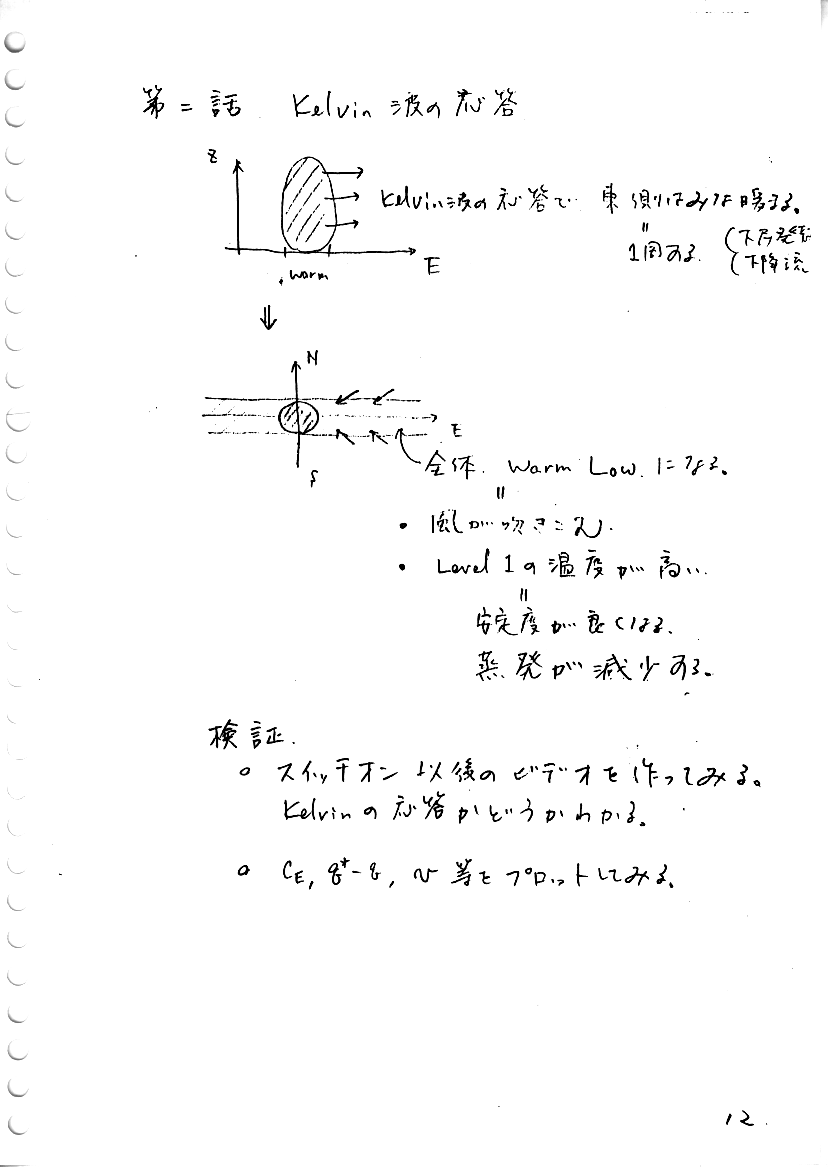 第二話 Kelvin 波の応答
z
Kelvin波の応答で 東側はみな暖まる。
=
1図ある.
下降流
E
warm
⇓
N
E
全体. Warm Low. になる。
S
=
• 風が吹きこみ.
• Level 1の温度が高い.
=
安定度が良くなる.
蒸発が減少する。
検証.
○ スイッチオン以後のビデオを作ってみる。
Kelvinの応答かどうかわかる。
○ CE, q*-q, v 等をプロットしてみる。
12